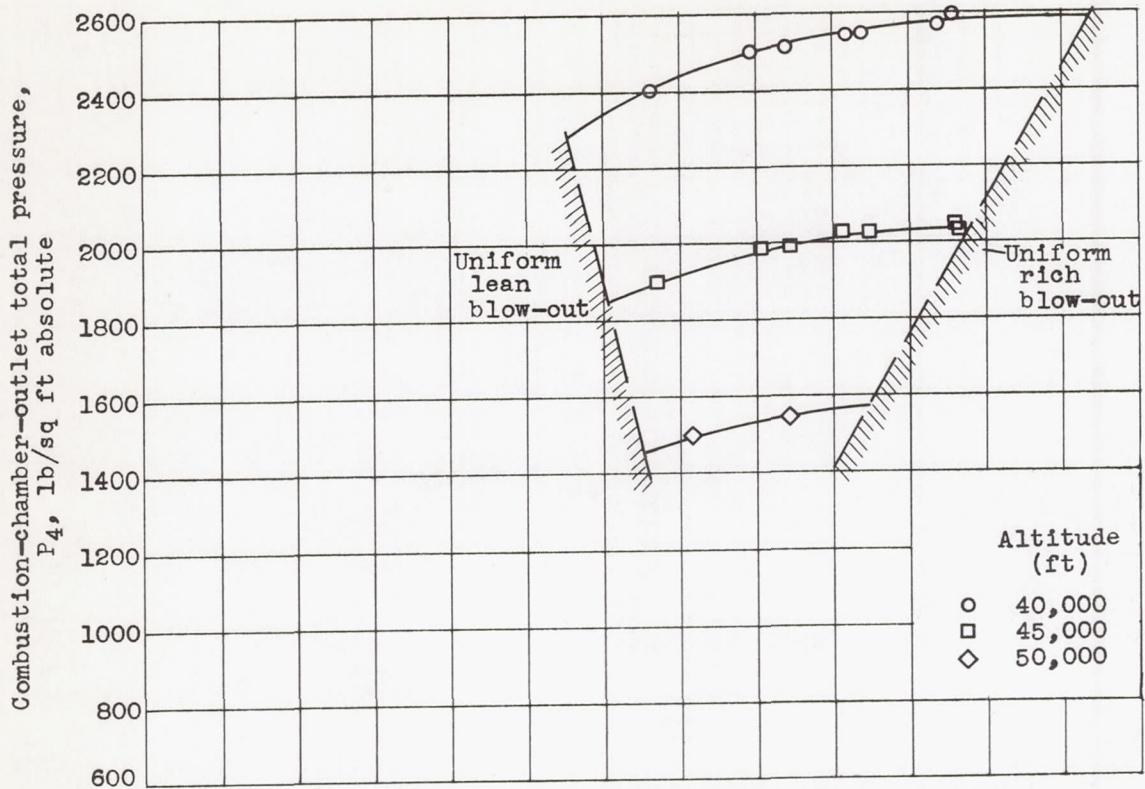 Combustion-chamber-outlet total pressure,
P4, lb/sq ft absolute
2600
2400
2200
2000
1800
1600
1400
1200
1000
800
600
Uniform
lean
blow-out
Uniform
rich
blow-out
Altitude
(ft)
40,000
45,000
50,000